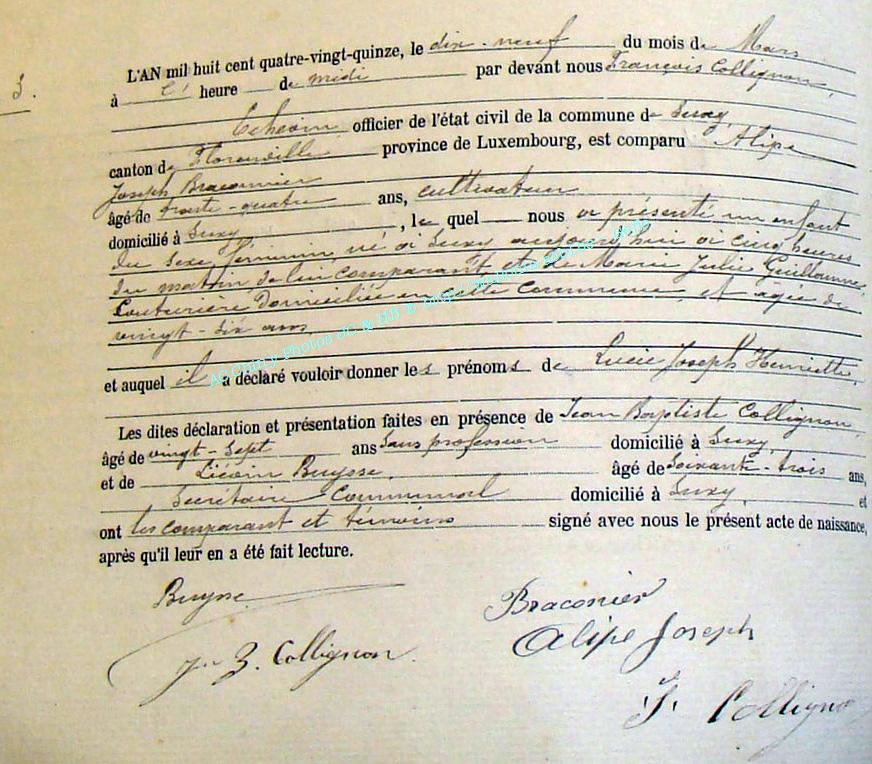 3.
L'AN mil huit cent quatre-vingt-quinze, le dix-neuf du mois de Mars
à heure de midi par devant nous François Collignon,
Echevin officier de l'état civil de la commune de Suxy,
canton de Florenville province de Luxembourg, est comparu Alipe
Joseph Braconnier
âgé de trente-quatre ans, cultivateur
domicilié à Suxy, lequel nous a présenté un enfant
du sexe féminin, né à Suxy aujourd'hui à cinq heures
du matin de lui comparant et de Marie Julie Guillaume,
Couturière domiciliée en cette commune, et âgée de
vingt-six ans,
et auquel il a déclaré vouloir donner les prénoms de Lucie Joseph Henriette,
Les dites déclaration et présentation faites en présence de Jean Baptiste Collignon,
âgé de vingt-sept ans sans profession domicilié à Suxy,
et de Liévin Buysse, âgé de soixante-trois ans,
Secrétaire Communal domicilié à Suxy, et
ont les comparant et témoins signé avec nous le présent acte de naissance,
après qu'il leur en a été fait lecture.
Buysse
Braconier
Alipe Joseph
J. B. Collignon.
F. Collignon